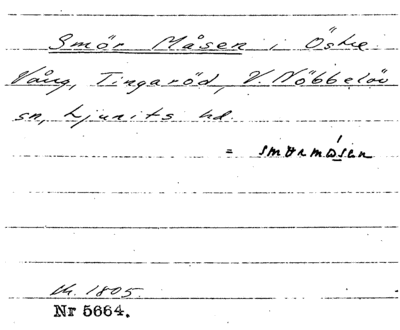 Smör Måsen i Östre
Vång, Tingaröd, V. Nöbbelöv
sn, Ljunits hd.
= smørmåsen
1805.
Nr 5664.